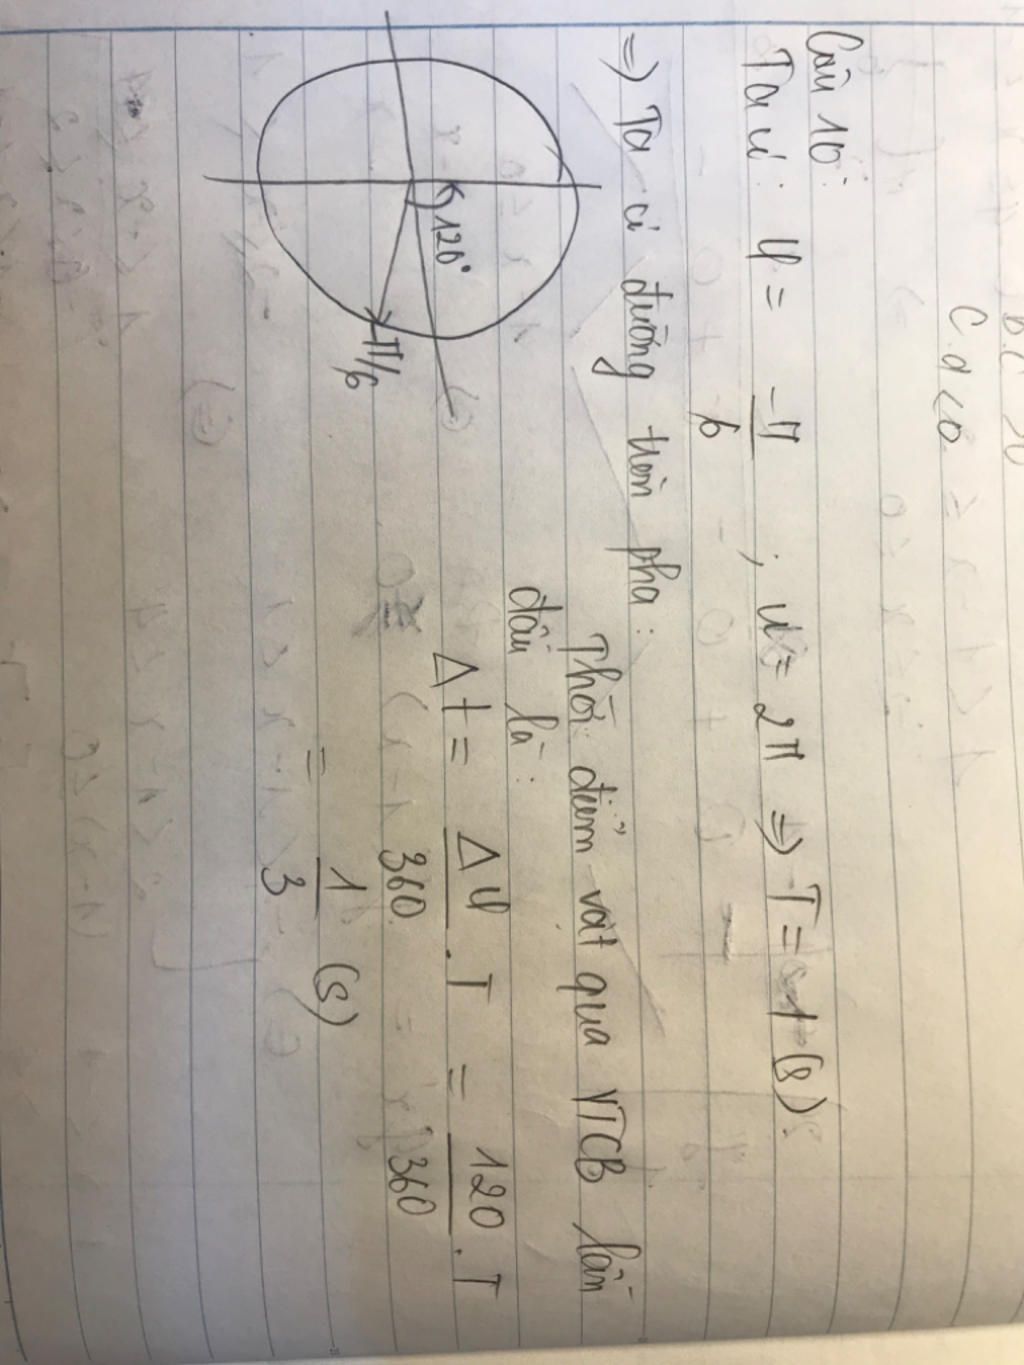 b.c >0
c.d <0
Câu 10:
Ta có: φ = -π/6 ; ω = 2π => T = 1 (s).
=> Ta có đường tròn pha:
120°
-π/6
Thời điểm vật qua VTCB lần
đầu là:
Δt = Δφ/360 . T = 120/360 . T
= 1/3 (s)